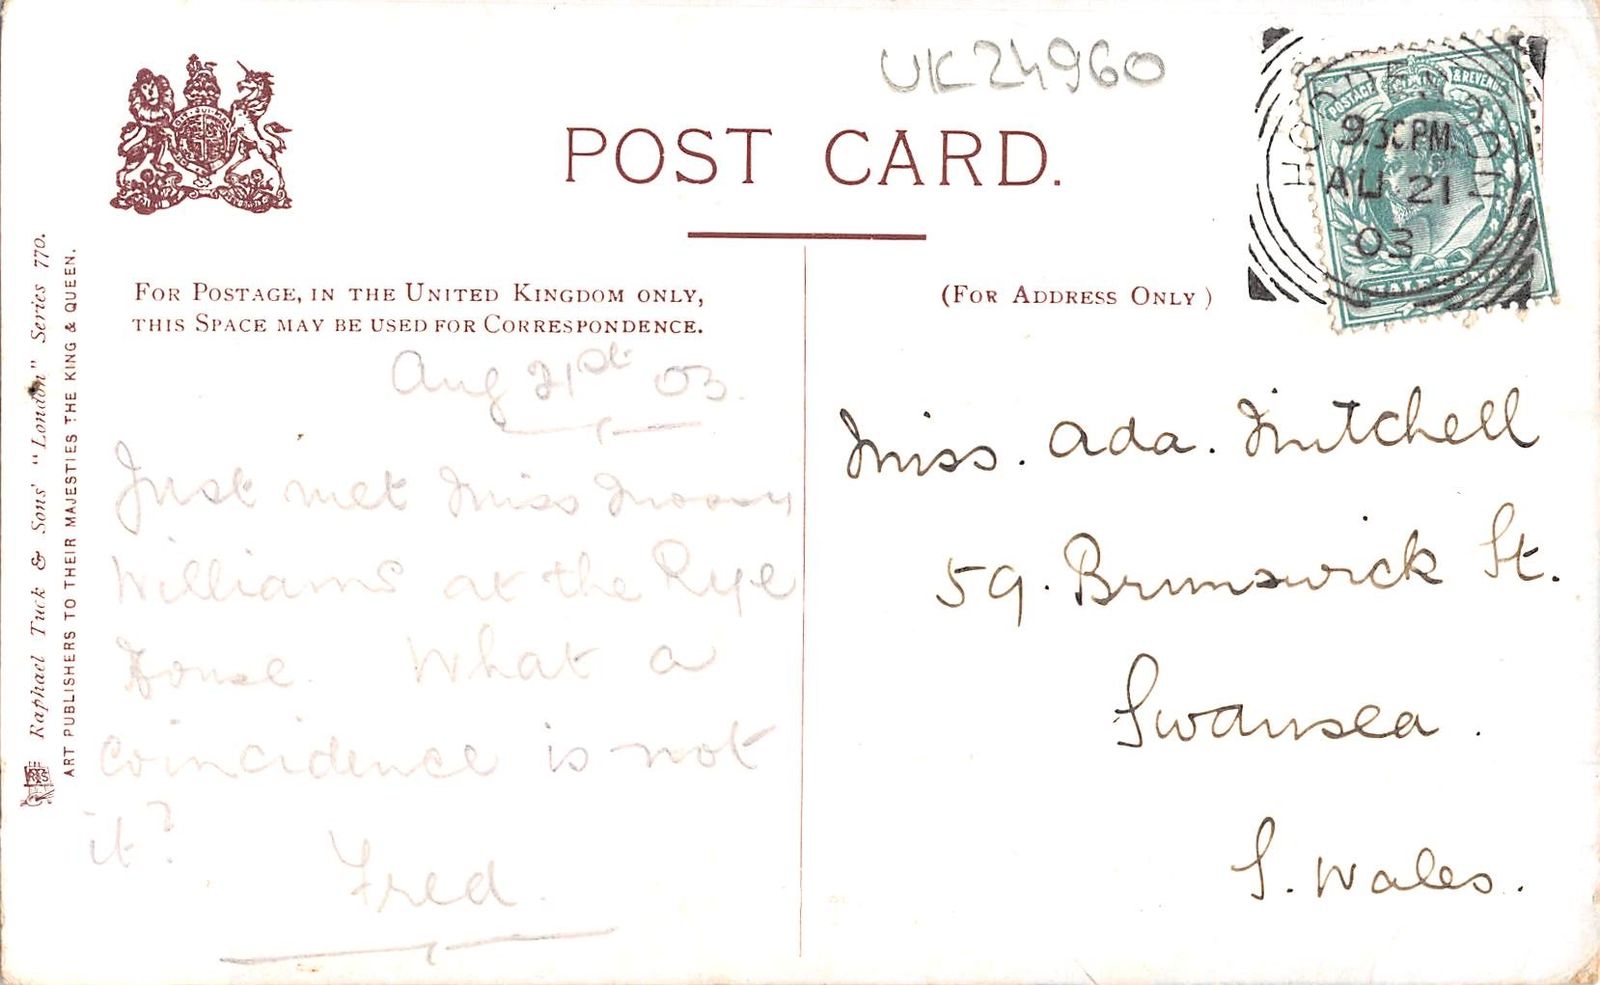 UK24960
POST CARD.
FOR POSTAGE, IN THE UNITED KINGDOM ONLY,
THIS SPACE MAY BE USED FOR CORRESPONDENCE.
(FOR ADDRESS ONLY)
POSTAGE & REVENUE
HODDESDON
9.30PM.
AU 21
03
HALFPENNY
Aug 21st 03.
Just met Miss
Williams at the Rye
House. What a
coincidence is not
it?
Fred.
Miss. Ada. Mitchell
59. Brunswick St.
Swansea.
S. Wales.
Raphael Tuck & Sons' "London" Series 770.
ART PUBLISHERS TO THEIR MAJESTIES THE KING & QUEEN.